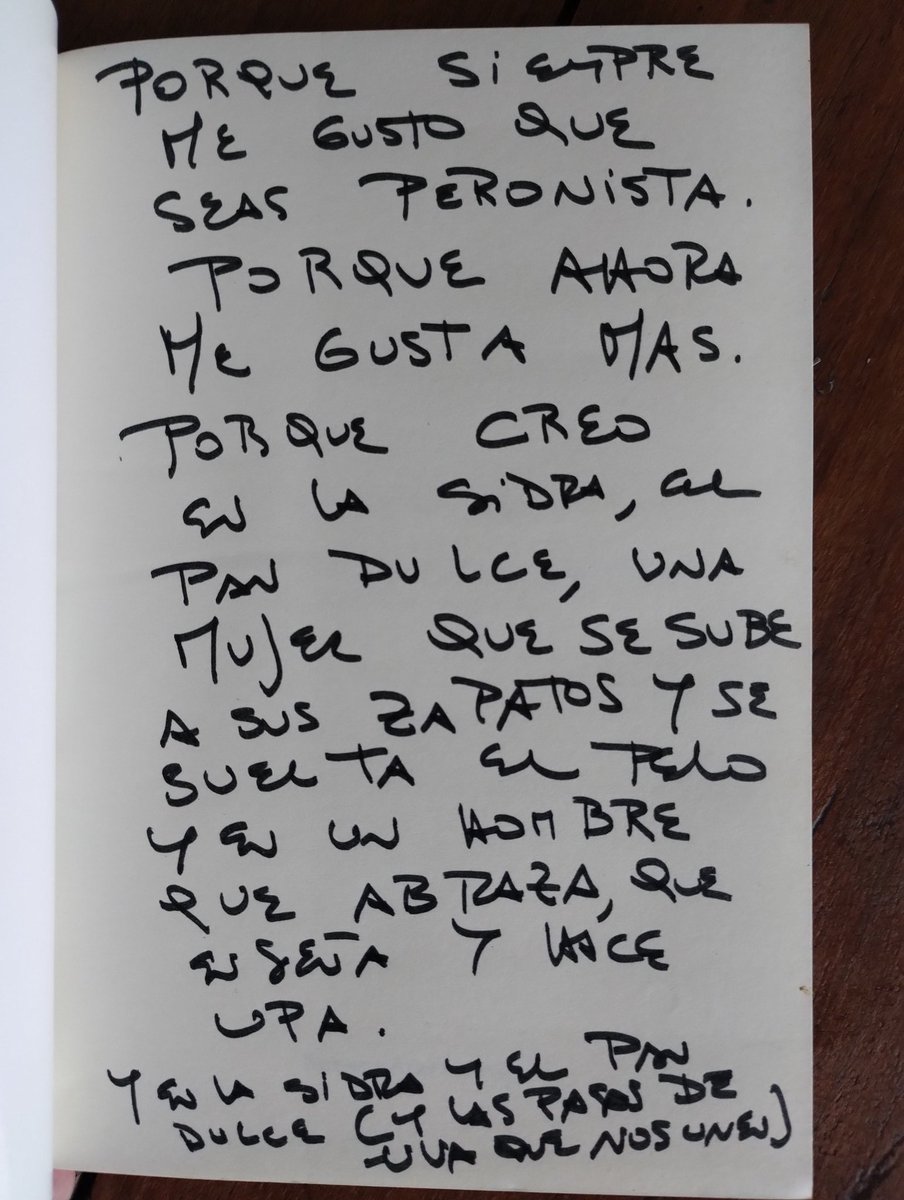 PORQUE SIEMPRE
ME GUSTO QUE
SEAS PERONISTA.
PORQUE AHORA
ME GUSTA MAS.
PORQUE CREO
EN LA SIDRA, EL
PAN DULCE, UNA
MUJER QUE SE SUBE
A SUS ZAPATOS Y SE
SUELTA EL PELO
Y EN UN HOMBRE
QUE ABRAZA, QUE
ENSEÑA Y HACE
UPA.
Y EN LA SIDRA Y EL PAN
DULCE (Y LAS PASAS DE
UVA QUE NOS UNEN)